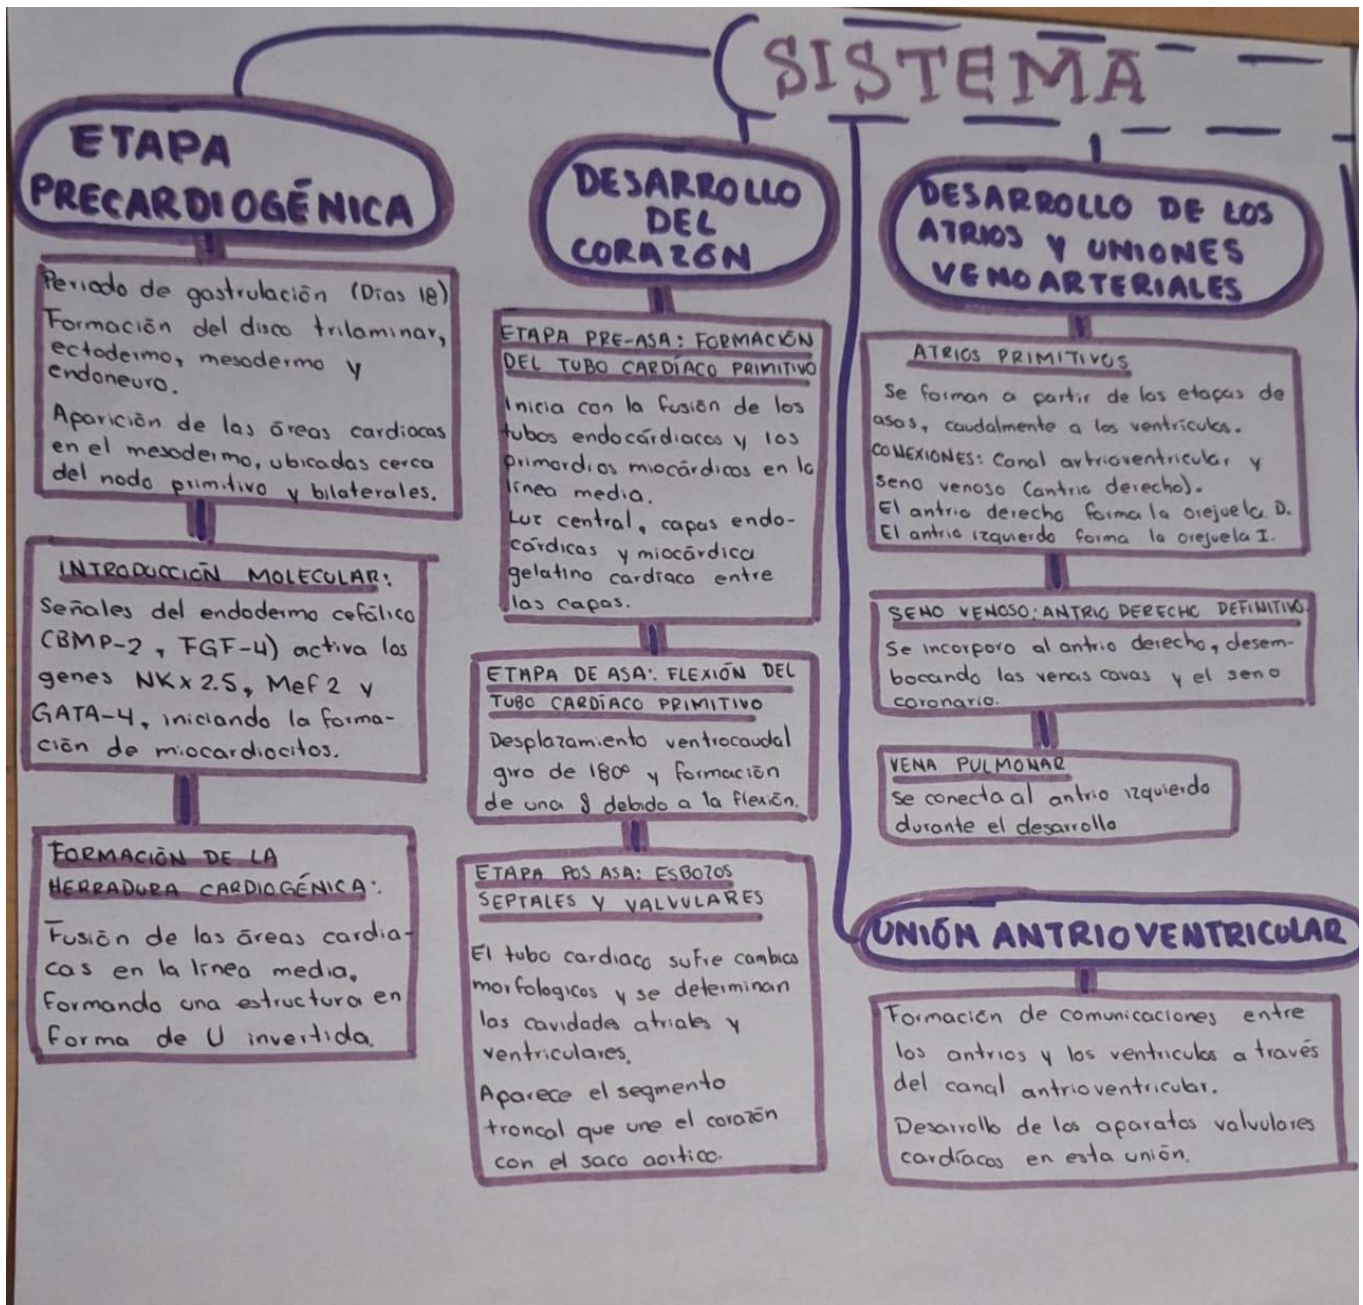 SISTEMA
ETAPA
PRECARDIOGÉNICA
Periodo de gastrulación (Días 18)
Formación del disco trilaminar,
ectodermo, mesodermo y
endoneuro.
Aparición de las áreas cardiacas
en el mesodermo, ubicadas cerca
del nodo primitivo y bilaterales.
INTRODUCCIÓN MOLECULAR:
Señales del endodermo cefálico
(BMP-2, FGF-4) activa los
genes NKx 2.5, Mef 2 y
GATA-4, iniciando la forma-
ción de miocardiocitos.
FORMACIÓN DE LA
HERRADURA CARDIOGÉNICA:
Fusión de las áreas cardia-
cas en la línea media,
formando una estructura en
forma de U invertida.
DESARROLLO
DEL
CORAZÓN
ETAPA PRE-ASA: FORMACIÓN
DEL TUBO CARDÍACO PRIMITIVO
Inicia con la fusión de los
tubos endocárdiacos y los
primordios miocárdicos en la
línea media.
Luz central, capas endo-
cárdicas y miocárdica
gelatino cardiaco entre
las capas.
ETAPA DE ASA: FLEXIÓN DEL
TUBO CARDÍACO PRIMITIVO
Desplazamiento ventrocaudal
giro de 180° y formación
de una S debido a la flexión.
ETAPA POS ASA: ESBOZOS
SEPTALES Y VALVULARES
El tubo cardiaco sufre cambios
morfologicos y se determinan
las cavidades atriales y
ventriculares.
Aparece el segmento
troncal que une el corazón
con el saco aortico.
DESARROLLO DE LOS
ATRIOS Y UNIONES
VENOARTERIALES
ATRIOS PRIMITIVOS
Se forman a partir de las etapas de
asas, caudalmente a los ventrículos.
CONEXIONES: Canal artrioventricular y
seno venoso (antrio derecho).
El antrio derecho forma la orejuela D.
El antrio izquierdo forma la orejuela I.
SENO VENOSO: ANTRIO DERECHO DEFINITIVO
Se incorpora al antrio derecho, desem-
bocando las venas cavas y el seno
coronario.
VENA PULMONAR
Se conecta al antrio izquierdo
durante el desarrollo
UNIÓN ANTRIOVENTRICULAR
Formación de comunicaciones entre
los antrios y los ventriculos a través
del canal antrioventricular.
Desarrollo de los aparatos valvulares
cardíacos en esta unión.